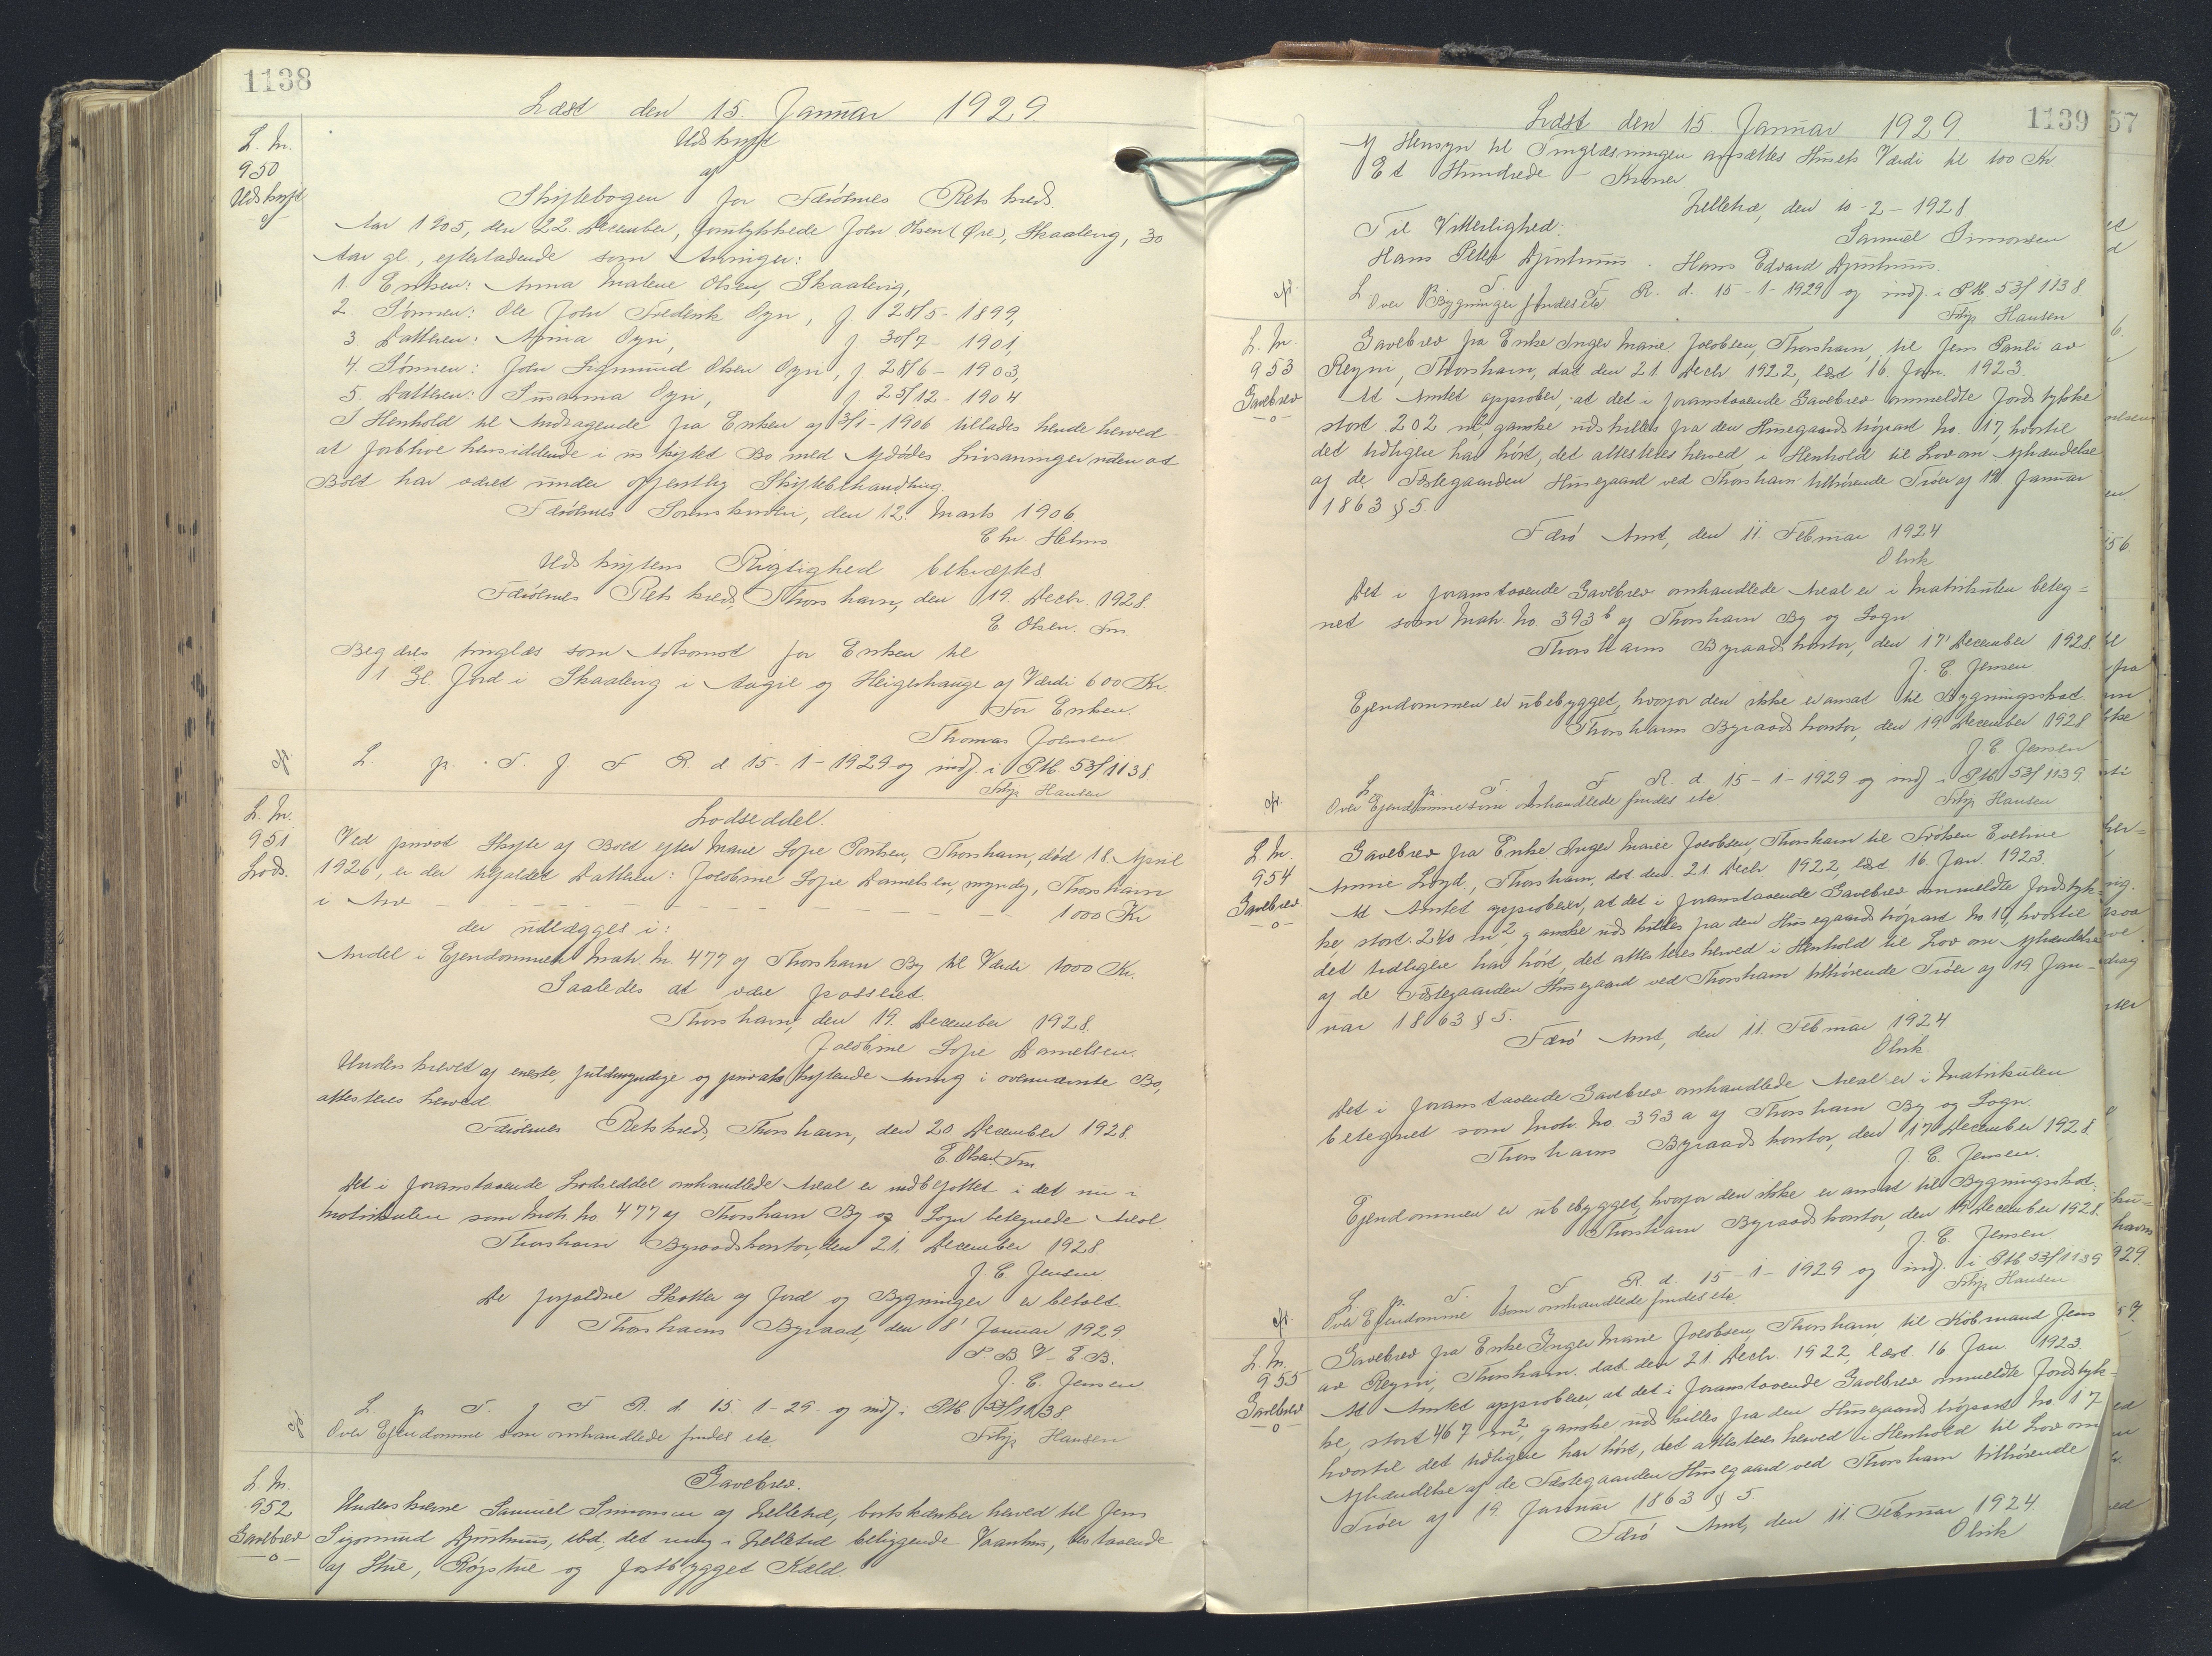 1138
Læst den 15. Januar 1929.
L. Nr.
950
Udskrift
Udskrift
af
Skiftebogen for Færøernes Retskreds.
Aar 1905, den 22. December, forulykkede John Olsen (Øre), Skaaleng, 30
Aar gl., efterladende som Arvinger:
1. Enken: Anna Malene Olsen, Skaaleng,
2. Sønnen: Ole John Frederik Oyn, f. 28/5 - 1899,
3. Datteren: Anina Oyn, f. 30/7 - 1901,
4. Sønnen: John Sigmund Olsen Oyn, f. 28/6 - 1903,
5. Datteren: Susanna Oyn, f. 25/12 - 1904
I Henhold til Andragende fra Enken af 13/1 - 1906 tillades hende herved
at forblive hensiddende i uskiftet Bo med Afdødes Livsarvinger uden at
Boet har været under offentlig Skiftebehandling.
Færøernes Sorenskriveri, den 12. Marts 1906.
Chr. Helms
Udskriftens Rigtighed bekræftes
Færøernes Retskreds, Thorshavn, den 19. Decbr. 1928.
E. Olsen. Fm.
Begæres tinglæst som Adkomst for Enken til
1 Gl. Jord i Skaaleng i Aagil og Heigerhauge af Værdi 600 Kr.
For Enken.
Thomas Joensen
L. p. T. f. F. R. d. 15 - 1 - 1929 og indf. i Ptk. 53/1138
Filip Hansen
L. Nr.
951
Lods.
Lodseddel.
Ved privat Skifte af Boet efter Marie Sofie Poulsen, Thorshavn, død 18. April
1926, er der tilfaldet Datteren: Jacobine Sofie Danielsen, myndig, Thorshavn
i Arv - - - - - - - - 1000 Kr
der udlægges i:
Andel i Ejendommen Matr. Nr. 477 af Thorshavn By til Værdi 1000 Kr.
Saaledes at være passeret.
Thorshavn, den 19. December 1928.
Jacobine Sofie Danielsen.
Underskrevet af eneste, fuldmyndige og privatskiftende Arving i ovennævnte Bo,
attesteres herved
Færøernes Retskreds, Thorshavn, den 20 December 1928.
E. Olsen. Fm.
Det i foranstaaende Lodseddel omhandlede Areal er indbefattet i det nu i
Matrikulen som Matr. No. 477 af Thorshavn By og Sogn betegnede Areal
Thorshavn Byraadskontor, den 21. December 1928
J. E. Jensen
De forfaldne Skatter af Jord og Bygninger er betalt.
Thorshavns Byraad, den 8' Januar 1929.
P. B. V - E. B.
J. E. Jensen.
L. p. T. f. F. R. d. 15. 1 - 29. og indf. i Ptk. 53/1138
Over Ejendomme som omhandlede findes etc.
Filip Hansen
L. Nr.
952
Gavebrev
Gavebrev.
Underskrevne Samuel Simonsen af Lelletræ, bortskænker herved til Jens
Sigmund Djurhuus, ibd., det mig i Lelletræ beliggende Vaanhus, bestaaende
af Stue, Røgstue og fastbygget Kæld.
1139
Læst den 15. Januar 1929
Af Hensyn til Tinglæsningen ansættes Husets Værdi til 100 Kr.
Et Hundrede Kroner
Lelletræ, den 10 - 2 - 1928
Samuel Simonsen
Til Vitterlighed:
Hans Peter Djurhuus. Hans Edvard Djurhuus.
L. p. T. f. F. R. d. 15 - 1 - 1929 og indf. i Ptk. 53/1138
Over Bygninger findes etc
Filip Hansen
L. Nr.
953
Gavebrev
Gavebrev fra Enke Inger Marie Jacobsen, Thorshavn, til Jens Pauli av
Reyni, Thorshavn, dat. den 21. Decbr 1922, læst 16. Jan. 1923.
At Amtet approber, at det i foranstaaende Gavebrev ommeldte Jordstykke
stort 202 m², ganske udskilles fra den Husegaards trøpart No. 17, hvortil
det tidligere har hørt, det attesteres herved i Henhold til Lov om Afhændelse
af de Fæstegaarden Husegaard ved Thorshavn tilhørende Trøer af 19 Januar
1863 § 5.
Færø Amt, den 11. Februar 1924
Olrik
Det i foranstaaende Gavebrev omhandlede Areal er i Matrikulen beteg=
net som Matr. No. 393 b af Thorshavn By og Sogn
Thorshavns Byraadskontor, den 17' December 1928.
J. E. Jensen
Ejendommen er ubebygget, hvorfor den ikke er ansat til Bygningsskat
Thorshavns Byraadskontor, den 19. December 1928
J. E. Jensen
L. p. T. f. F. R. d. 15 - 1 - 1929 og indf. i Ptk. 53/1139
Over Ejendomme som omhandlede findes etc
Filip Hansen
L. Nr.
954
Gavebrev
Gavebrev fra Enke Inger Marie Jacobsen, Thorshavn til Frøken Eveline
Annie Loyd, Thorshavn, dat. den 21. Decbr 1922, læst 16. Jan. 1923.
At Amtet approberer, at det i foranstaaende Gavebrev ommeldte Jordstyk-
ke, stort. 240 m², ganske udskilles fra den Husegaards trøpart No. 17, hvortil
det tidligere har hørt, det attesteres herved i Henhold til Lov om Afhændelse
af de Fæstegaarden Husegaard ved Thorshavn tilhørende Trøer af 19 Jan-
uar 1863 § 5.
Færø Amt, den 11. Februar 1924
Olrik.
Det i foranstaaende Gavebrev omhandlede Areal er i Matrikulen
betegnet som Matr. No. 393 a af Thorshavn By og Sogn
Thorshavns Byraadskontor, den 17' December 1928
J. E. Jensen.
Ejendommen er ubebygget, hvorfor den ikke er ansat til Bygningsskat.
Thorshavn Byraadskontor, den 19 December 1928
J. E. Jensen
L. p. T. f. F. R. d. 15 - 1 - 1929 og indf. i Ptk 53/1139
Over Ejendomme som omhandlede findes etc.
Filip Hansen
L. Nr.
955
Gavebrev
Gavebrev fra Enke Inger Marie Jacobsen, Thorshavn, til Købmand Jens
av Reyni, Thorshavn, dat den 21. Decbr. 1922, læst. 16 Jan 1923.
At Amtet approberer, at det i foranstaaende Gavebrev ommeldte Jordstyk-
ke, stort 467 m², ganske udskilles fra den Husegaards trøpart No. 17
hvortil det tidligere har hørt, det attesteres herved i Henhold til Lov om
Afhændelse af de Fæstegaarden Husegaard ved Thorshavn tilhørende
Trøer af 19. Januar 1863 § 5.
Færø Amt, den 11 Februar 1924.
Olrik
57